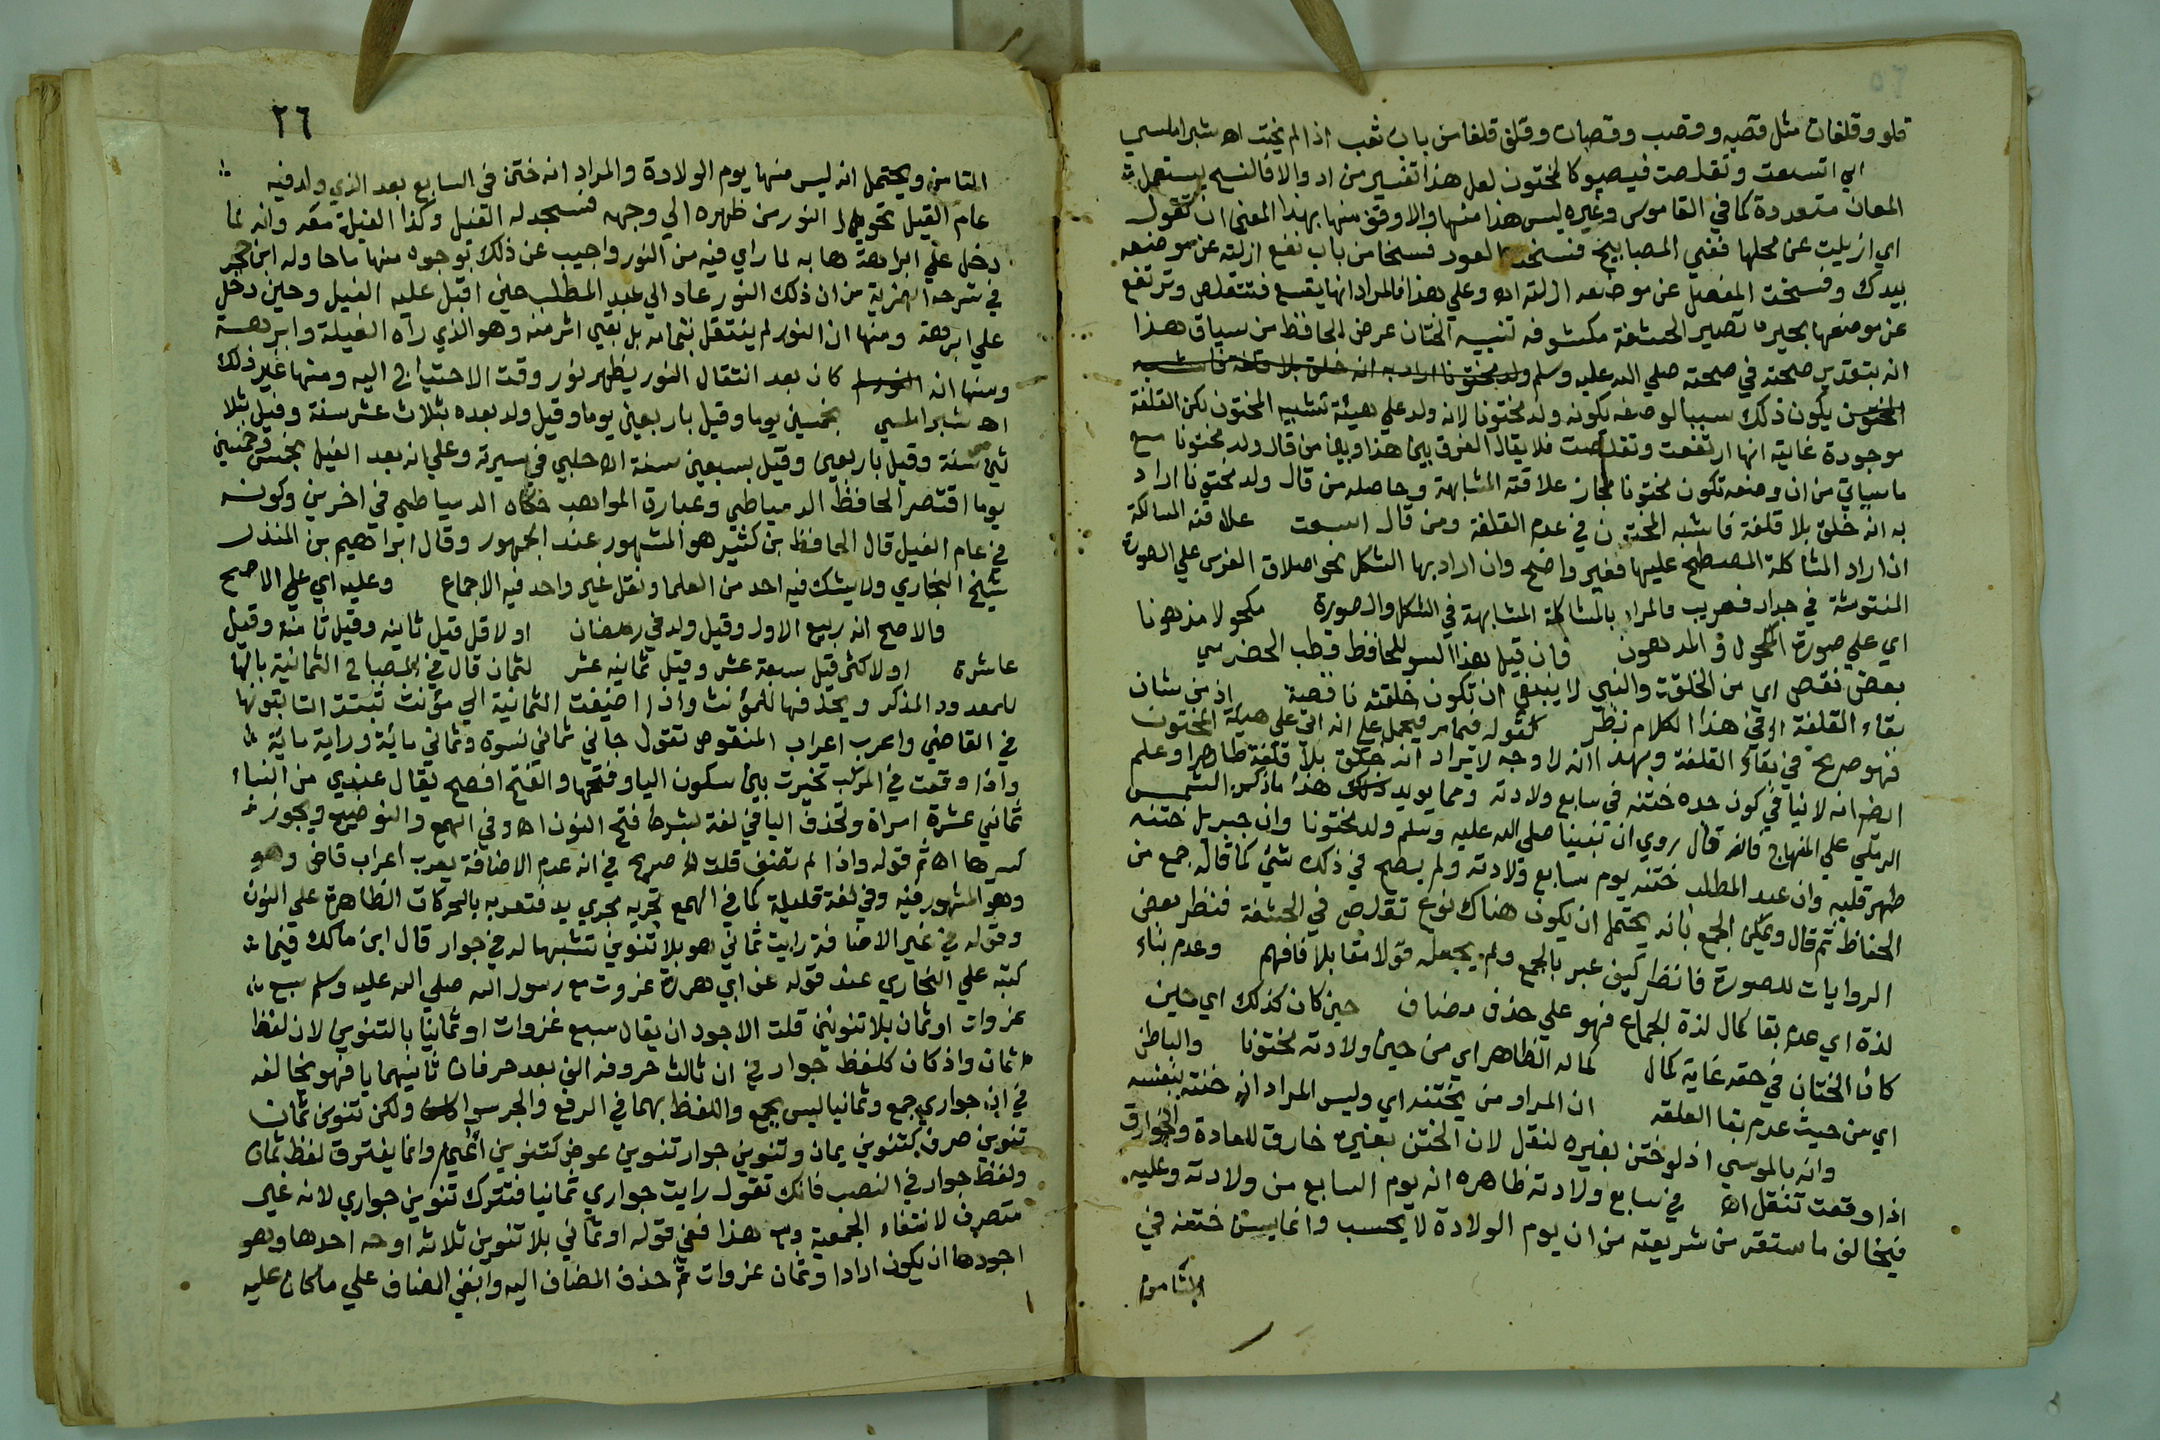 قلو وقلفات مثل قصبه وقصب وقصبات وقلف قلفا من باب تعب اذا لم يختن اه شبراملسي
اي اتسعت وتقلصت فيصير كالمختون لعل هذا تفسير مراد والا فالفسخ يستعمل
المعان متعددة كما في القاموس وغيره ليس هذا منها والاوفق منها بهذا المعنى ان تقول
اي ازيلت عن محلها ففي المصابيح فسخت العود فسخا من باب نفع ازلته عن موضعه
بيدك وفسخت المفصل عن موضعه ازلته اه وعلي هذا فالمراد انها يقسع فتتقلص وترتفع
عن موضعها بحيث تصير الحشفة مكشوفه تنبيه الختان عرض الحافظ من سياق هذا
انه بتقدير صحته في صحته صلي الله عليه وسلم ولد مختونا اراد به انه خلق بلا قلفة
المختون يكون ذلك سببا لوصفه بكونه ولد مختونا لانه ولد علي هيئة تشبيه المختون لكن القلفة
موجودة غايته انها ارتفعت وتقلصت فلا يقال الفرق بين هذا وبين من قال ولد مختونا مع
ماسياتي من ان وصفه تكون مختونا مجاز علاقته المشابهة وحاصله من قال ولد مختونا اراد
به انه خلق بلا قلفة فاشبه المختون في عدم القلفة ومن قال اسبعت علاقته المشاكلة
ان اراد المشاكلة المصطلح عليها فغير واضح وان اراد بها الشكل نحو اطلاق الفرس علي الصورة
المنقوشة في جدار فقريب فالمراد بالمشاكلة المشابهة في الشكل والصورة مكحولا مدهونا
اي علي صورة المكحول والمدهون فان قيل هذا السو للحافظ قطب الخضري
بعض نقص اي من الخلقة والنبي لا ينبغي ان تكون خلقته ناقصة اذ من شان
بقاء القلفة اه وفي هذا الكلام نظر كقوله فيما مر فيحمل علي انه اتى علي هيئة المختون
فهو صريح في بقاء القلفة وبهذا انه لا وجه لايراد انه خلق بلا قلفة ظاهرا وعلم
ايضا انه لا نيا في كون جده ختنه في سابع ولادته ومما يويد ذلك هذا ما ذكره الشمس
الرملي علي المنهاج فانه قال روي ان نبينا صلي الله عليه وسلم ولد مختونا وان جبريل ختنه
طهر قلبه وان عبد المطلب ختنه يوم سابع ولادته ولم يصح في ذلك شي كما قال جمع من
الحفاظ ثم قال ويمكن الجمع بانه يحتمل ان يكون هناك نوع تقلص في الحشفة فنظر بعض
الروايات للصورة فانظر كيف عبر بالجمع ولم يجعله قولا مقابلا فافهم وعدم بناء
لذة اي عدم بقا كمال لذة الجماع فهو علي حذف مضاف حين كان كذلك اي حين
كان الختان في حقه غاية كمال كماله الظاهر اي من حين ولادته مختونا والباطن
اي من حيث عدم بقا القلفه ان المراد من يختتنه اي وليس المراد انه ختنه بنفسه
وانه بالموسي اذ لو ختن بغيره لنقل لان الختن بغيره خارق للعادة والخوارق
اذا وقعت تنقل اه في سابع ولادته ظاهره انه يوم السابع من ولادته وعليه
فيخالف ما ستقر من شريعته من ان يوم الولادة لا يحسب وانما يسن ختنه في
الثامن
٢٦
الثامن ويحتمل انه ليس منها يوم الولادة والمراد انه ختن في السابع بعد الذي ولد فيه
عام الفيل تحويل النور من ظهره الي وجهه فسجد له الفيل وكذا الفيلة معه وانه لما
دخل علي ابرهة هابه لما راي فيه من النور واجيب عن ذلك بوجوه منها ما حاوله ابن حجر
في شرحه الهمزية من ان ذلك النور عاد الي عبد المطلب حين اقبل عليه الفيل وحين دخل
علي ابرهة ومنها ان النور لم ينتقل بتمامه بل بقي اثر منه وهو الذي رآه الفيلة وابرهة
ومنها انه كان بعد انتقال النور يظهر نور وقت الاحتياج اليه ومنها غير ذلك
اه شبراملسي بخمسين يوما وقيل باربعين يوما وقيل ولد بعده بثلاث عشر سنة وقيل بثلا
ثين سنة وقيل باربعين وقيل بسبعين سنة اه حلبي في سيرته وعلي انه بعد الفيل بخمس وخمسين
يوما اقتصر الحافظ الدمياطي وعبارة المواهب حكاه الدمياطي في اخرين وكونه
في عام الفيل قال الحافظ بن كثير هو المشهور عند الجمهور وقال ابراهيم بن المنذر
شيخ البخاري ولا يشك فيه احد من العلما ونقل غير واحد فيه الاجماع وعليه اي علي الاصح
فالاصح انه ربيع الاول وقيل ولد في رمضان اولا قل قيل ثانيه وقيل ثامنه وقيل
عاشرة اولا كثر قيل سبعة عشر وقيل ثمانيه عشر لثمان قال في المصباح الثمانية بالها
للمعدود المذكر ويحذفها للمؤنث واذا اضيفت الثمانية الي مؤنث تثبت اليا ثبوتها
في القاضي واعرب اعراب المنقوص تقول جاني ثماني نسوة وثماني مائة وراية مائة
واذا وقعت في المركب تخيرت بين سكون اليا وفتحها والفتح افصح يقال عندي من النساء
ثماني عشرة امراة وتحذف اليا في لغة بشرط فتح النون اه وفي الهمع والتوضيح ويجوز
كسرها اه ثم قوله واذا لم تضف قلت اه صريح في انه عدم الاضافة يعرب اعراب قاض وهو
وهو المشهور فيه وفي لغة قليلة كما في الهمع تجريه مجري يد فتعربه بالحركات الظاهرة علي النون
وقوله في غير الاضافة رايت ثماني هو بلا تنوين تشبيها له في جوار قال ابن مالك فيما
كتبه علي البخاري عند قوله عن ابي هريرة غزوت مع رسول الله صلي الله عليه وسلم سبع
غزوات او ثمان بلا تنوين قلت الاجود ان يقال سبع غزوات او ثمانيا بالتنوين لان لفظ
ثمان واذ كان كلفظ جوار في ان ثالث حروفه الف بعد حرفان ثانيهما يا فهو يخالفه
في ان جواري جمع وثمانيا ليس بجمع واللفظ بهما في الرفع والجر سوا ولكن تنوين ثمان
تنوين صرف كتنوين يمان وتنوين جوار تنوين عوض كتنوين اعيم وانما يفترق لفظ ثمان
ولفظ جوار في النصب فانك تقول رايت جواري ثمانيا فتترك تنوين جواري لانه غير
متصرف لانتفاء الجمعية هذا ففي قوله او ثماني بلا تنوين ثلاثة اوجه احدها وهو
اجودها ان يكون اراد او ثمان غزوات ثم حذف المضاف اليه وابقي المضاف علي ما كان عليه